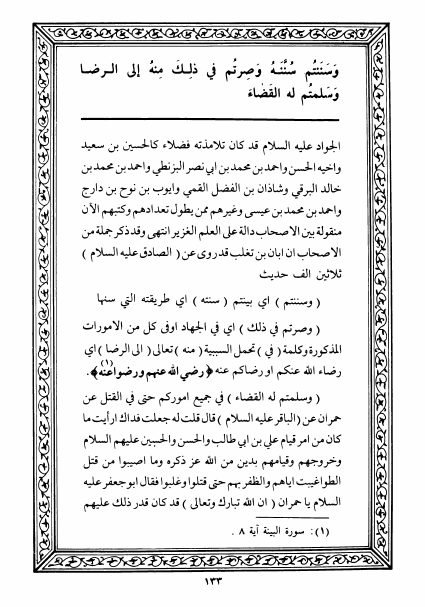 وَسَنَنتُم سُنَّنَهُ وَصِرتُم في ذلِكَ مِنهُ إلى الـرضـا
وَسَلمتُم له القَضٰاءَ
الجواد عليه السلام قد كان تلامذته فضلاء كالحسين بن سعيد
واخيه الحسن واحمد بن محمد بن ابي نصر البزنطي واحمد بن محمد بن
خالد البرقي وشاذان بن الفضل القمي وايوب بن نوح بن دارج
واحمد بن محمد بن عيسى وغيرهم ممن يطول تعدادهم وكتبهم الآن
منقولة بين الاصحاب دالة على العلم الغزير انتهى وقد ذكر جملة من
الاصحاب ان ابان بن تغلب قد روى عن ( الصادق عليه السلام )
ثلاثين الف حديث
( وسننتم ) اي بينتم ( سنته ) اي طريقته التي سنها
( وصرتم في ذلك ) اي في الجهاد اوفى كل من الامورات
المذكورة وكلمة ( في ) تحمل السببية ( منه ) تعالى ( الى الرضا ) اي
رضاء الله عنكم او رضاكم عنه ﴿رضي الله عنهم ورضوا عنه﴾(١) .
( وسلمتم له القضاء ) في جميع اموركم حتى في القتل عن
حمران عن ( الباقر عليه السلام ) قال قلت له جعلت فداك ارأيت ما
كان من امر قيام علي بن ابي طالب والحسن والحسين عليهم السلام
وخروجهم وقيامهم بدين من الله عز ذكره وما اصيبوا من قتل
الطواغيت اياهم والظفر بهم حتى قتلوا وغلبوا فقال ابو جعفر عليه
السلام يا حمران ( ان الله تبارك وتعالى ) قد كان قدر ذلك عليهم
(١): سورة البينة آية ٨ .
١٣٣